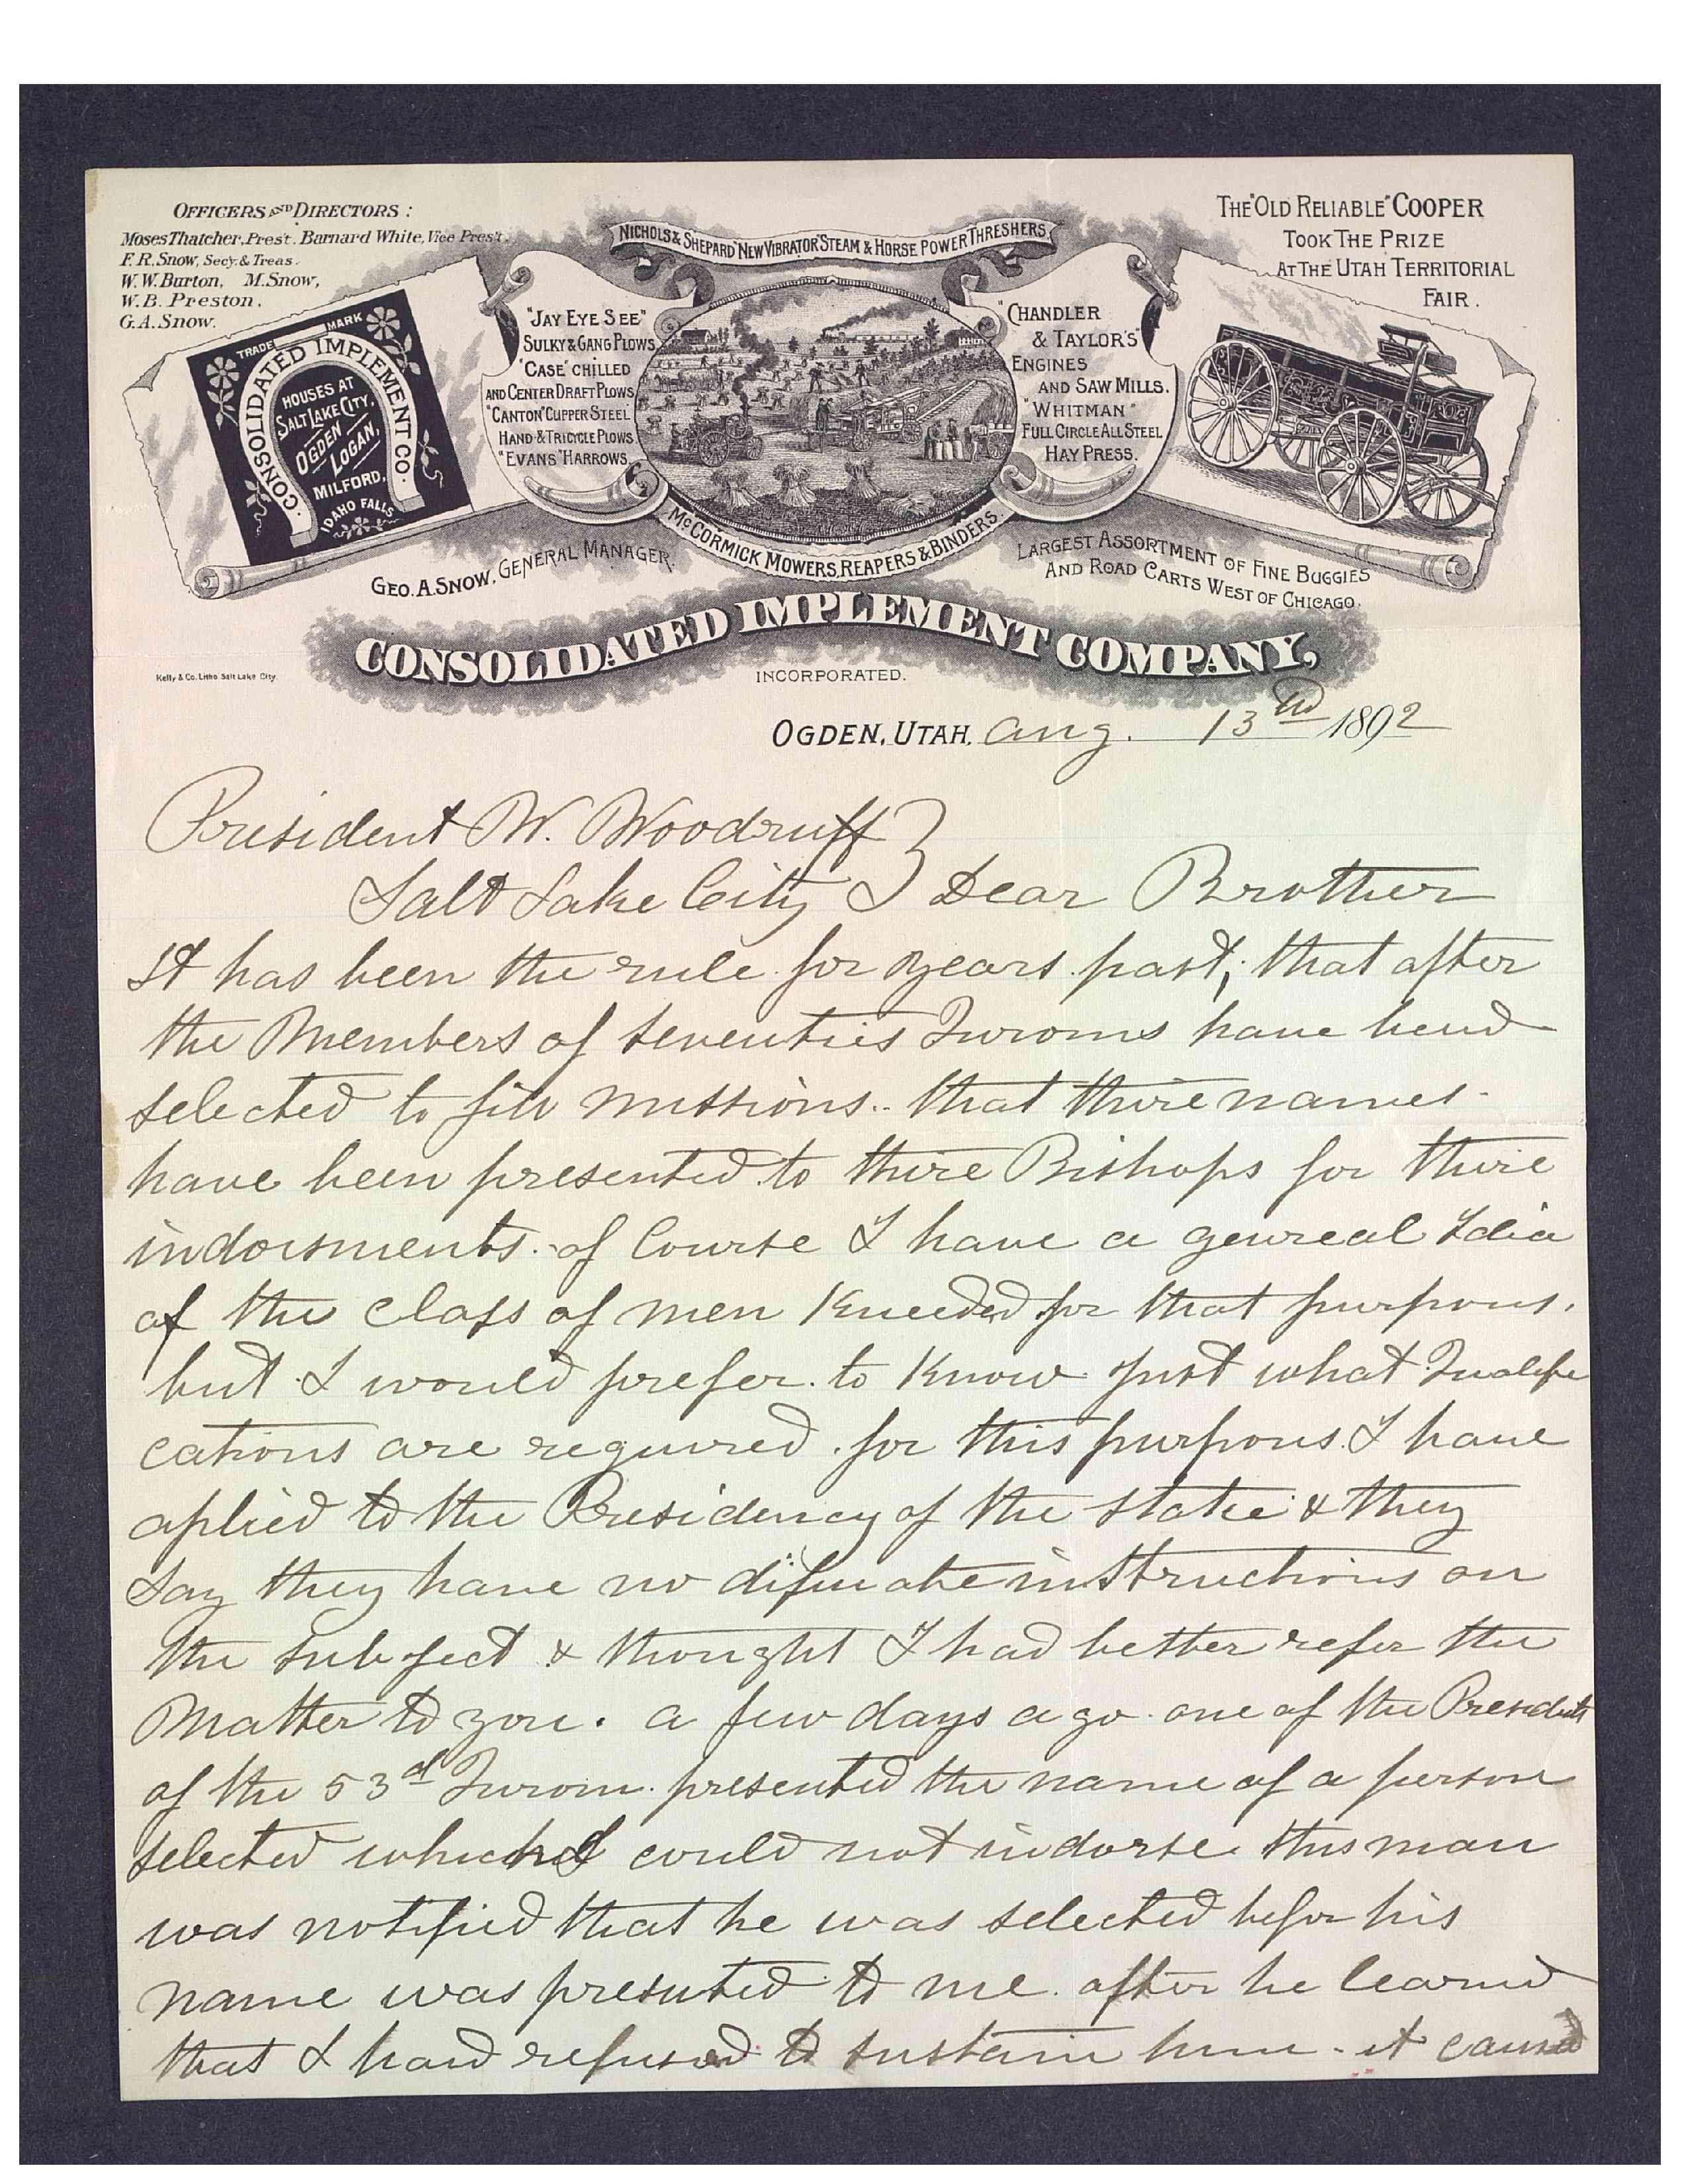 OFFICERS AND DIRECTORS:
Moses Thatcher, Prest. Barnard White, Vice Prest.
F. R. Snow, Secy. & Treas.
W. W. Burton, M. Snow,
W. B. Preston,
G. A. Snow.
TRADE MARK
CONSOLIDATED IMPLEMENT CO.
HOUSES AT
SALT LAKE CITY,
OGDEN
LOGAN,
MILFORD,
IDAHO FALLS
GEO. A. SNOW, GENERAL MANAGER.
NICHOLS & SHEPARD "NEW VIBRATOR" STEAM & HORSE POWER THRESHERS,
"JAY EYE SEE"
SULKY & GANG PLOWS
"CASE" CHILLED
AND CENTER DRAFT PLOWS
"CANTON" CLIPPER STEEL
HAND & TRICYCLE PLOWS
"EVANS" HARROWS.
"CHANDLER
& TAYLOR'S"
ENGINES
AND SAW MILLS.
"WHITMAN"
FULL CIRCLE ALL STEEL
HAY PRESS.
McCORMICK MOWERS, REAPERS & BINDERS.
THE "OLD RELIABLE" COOPER
TOOK THE PRIZE
AT THE UTAH TERRITORIAL
FAIR.
LARGEST ASSORTMENT OF FINE BUGGIES
AND ROAD CARTS WEST OF CHICAGO.
CONSOLIDATED IMPLEMENT COMPANY,
INCORPORATED.
Kelly & Co. Litho. Salt Lake City.
OGDEN, UTAH, Aug. 13th 1892
President W. Woodruff
Salt Lake City } Dear Brother
It has been the rule for years past, that after
the Members of seventies Quroms have bend
selected to fill missions.. that thire names.
have been presented to thire Bishops for thire
indorsments. of Course I have a genreal Idia
of the class of men Kneeded for that purpous.
but I would prefer to Know just what Qualefi
cations are required for this purpous. I have
aplied to the Presidency of the stake & they
say they have no difinate instructions on
the subject & thought I had better refer the
Matter to you. a few days ago one of the Presidents
of the 53d Qurom presented the name of a person
selected which I could not indorse this man
was notified that he was selected befor his
name was presented to me. after he learned
that I had refused to sustain him - it caused